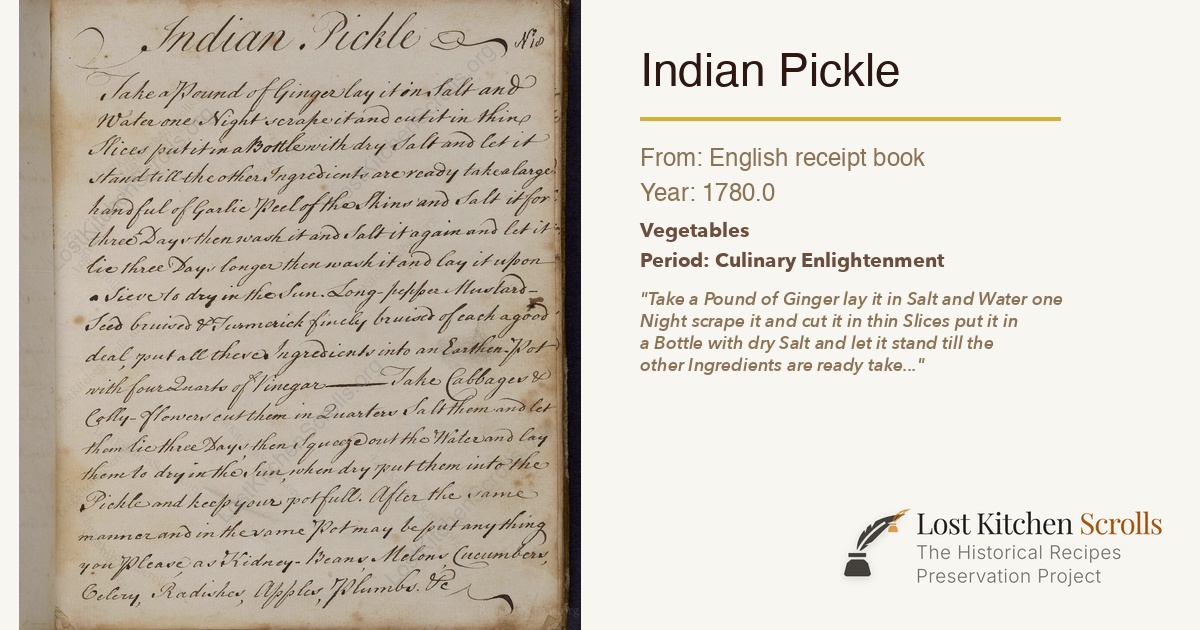 Indian Pickle
Take a Pound of Ginger lay it in Salt and
Water one Night scrape it and cut it in thin
Slices put it in a Bottle with dry Salt and let it
stand till the other Ingredients are ready take a large
handful of Garlic Peel of the Skins and Salt it for
three Days then wash it and Salt it again and let it
lie three Days longer then wash it and lay it upon
a Sieve to dry in the Sun. Long-pepper Mustard-
Seed bruised & Turmerick finely bruised of each a good
deal, put all these Ingredients into an Earthen-Pot
with four Quarts of Vinegar — Take Cabbages &
Colly-flowers cut them in Quarters Salt them and let
them lie three Days, then Squeeze out the Water and lay
them to dry in the Sun, when dry put them into the
Pickle and keep your pot full. After the same
manner and in the same Pot may be put any thing
you Please, as Kidney-Beans, Melons, Cucumbers,
Celery, Radishes, Apples, Plumbs. &c
Indian Pickle
From: English receipt book
Year: 1780.0
Vegetables
Period: Culinary Enlightenment
"Take a Pound of Ginger lay it in Salt and Water one
Night scrape it and cut it in thin Slices put it in
a Bottle with dry Salt and let it stand till the
other Ingredients are ready take..."
Lost Kitchen Scrolls
The Historical Recipes
Preservation Project